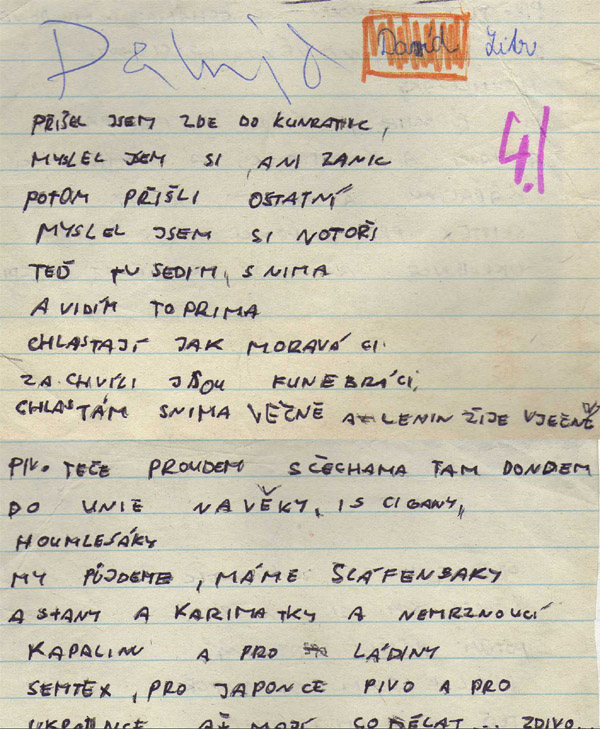 David David Libr.
PŘIŠEL JSEM ZDE DO KUNRATIC,
4.
MYSLEL JSEM SI, ANI ZANIC
POTOM PŘIŠLI OSTATNÍ
MYSLEL JSEM SI NOTOŘI
TEĎ TU SEDIM, SNIMA
A VIDÍM TO PRIMA
CHLASTAJÍ JAK MORAVÁCI.
ZA CHVÍLI JSOU FUNEBRÁCI,
CHLASTÁM SNIMA VĚČNĚ LENIN ŽIJE VJEČNĚ
PIVO TEČE PROUDEM SČECHAMA TAM DONDEM
DO UNIE NAVĚKY, IS CIGANY,
HOUMLESÁKY
MY PŮJDEME, MÁME ŠLÁFENSAKY
A STANY A KARIMATKY A NEMRZNOUCÍ
KAPALINU A PRO LÁDINY
SEMTEX, PRO JAPONCE PIVO A PRO
UKRAINCE AŤ MAJÍ CO DĚLAT... ZDIVO...